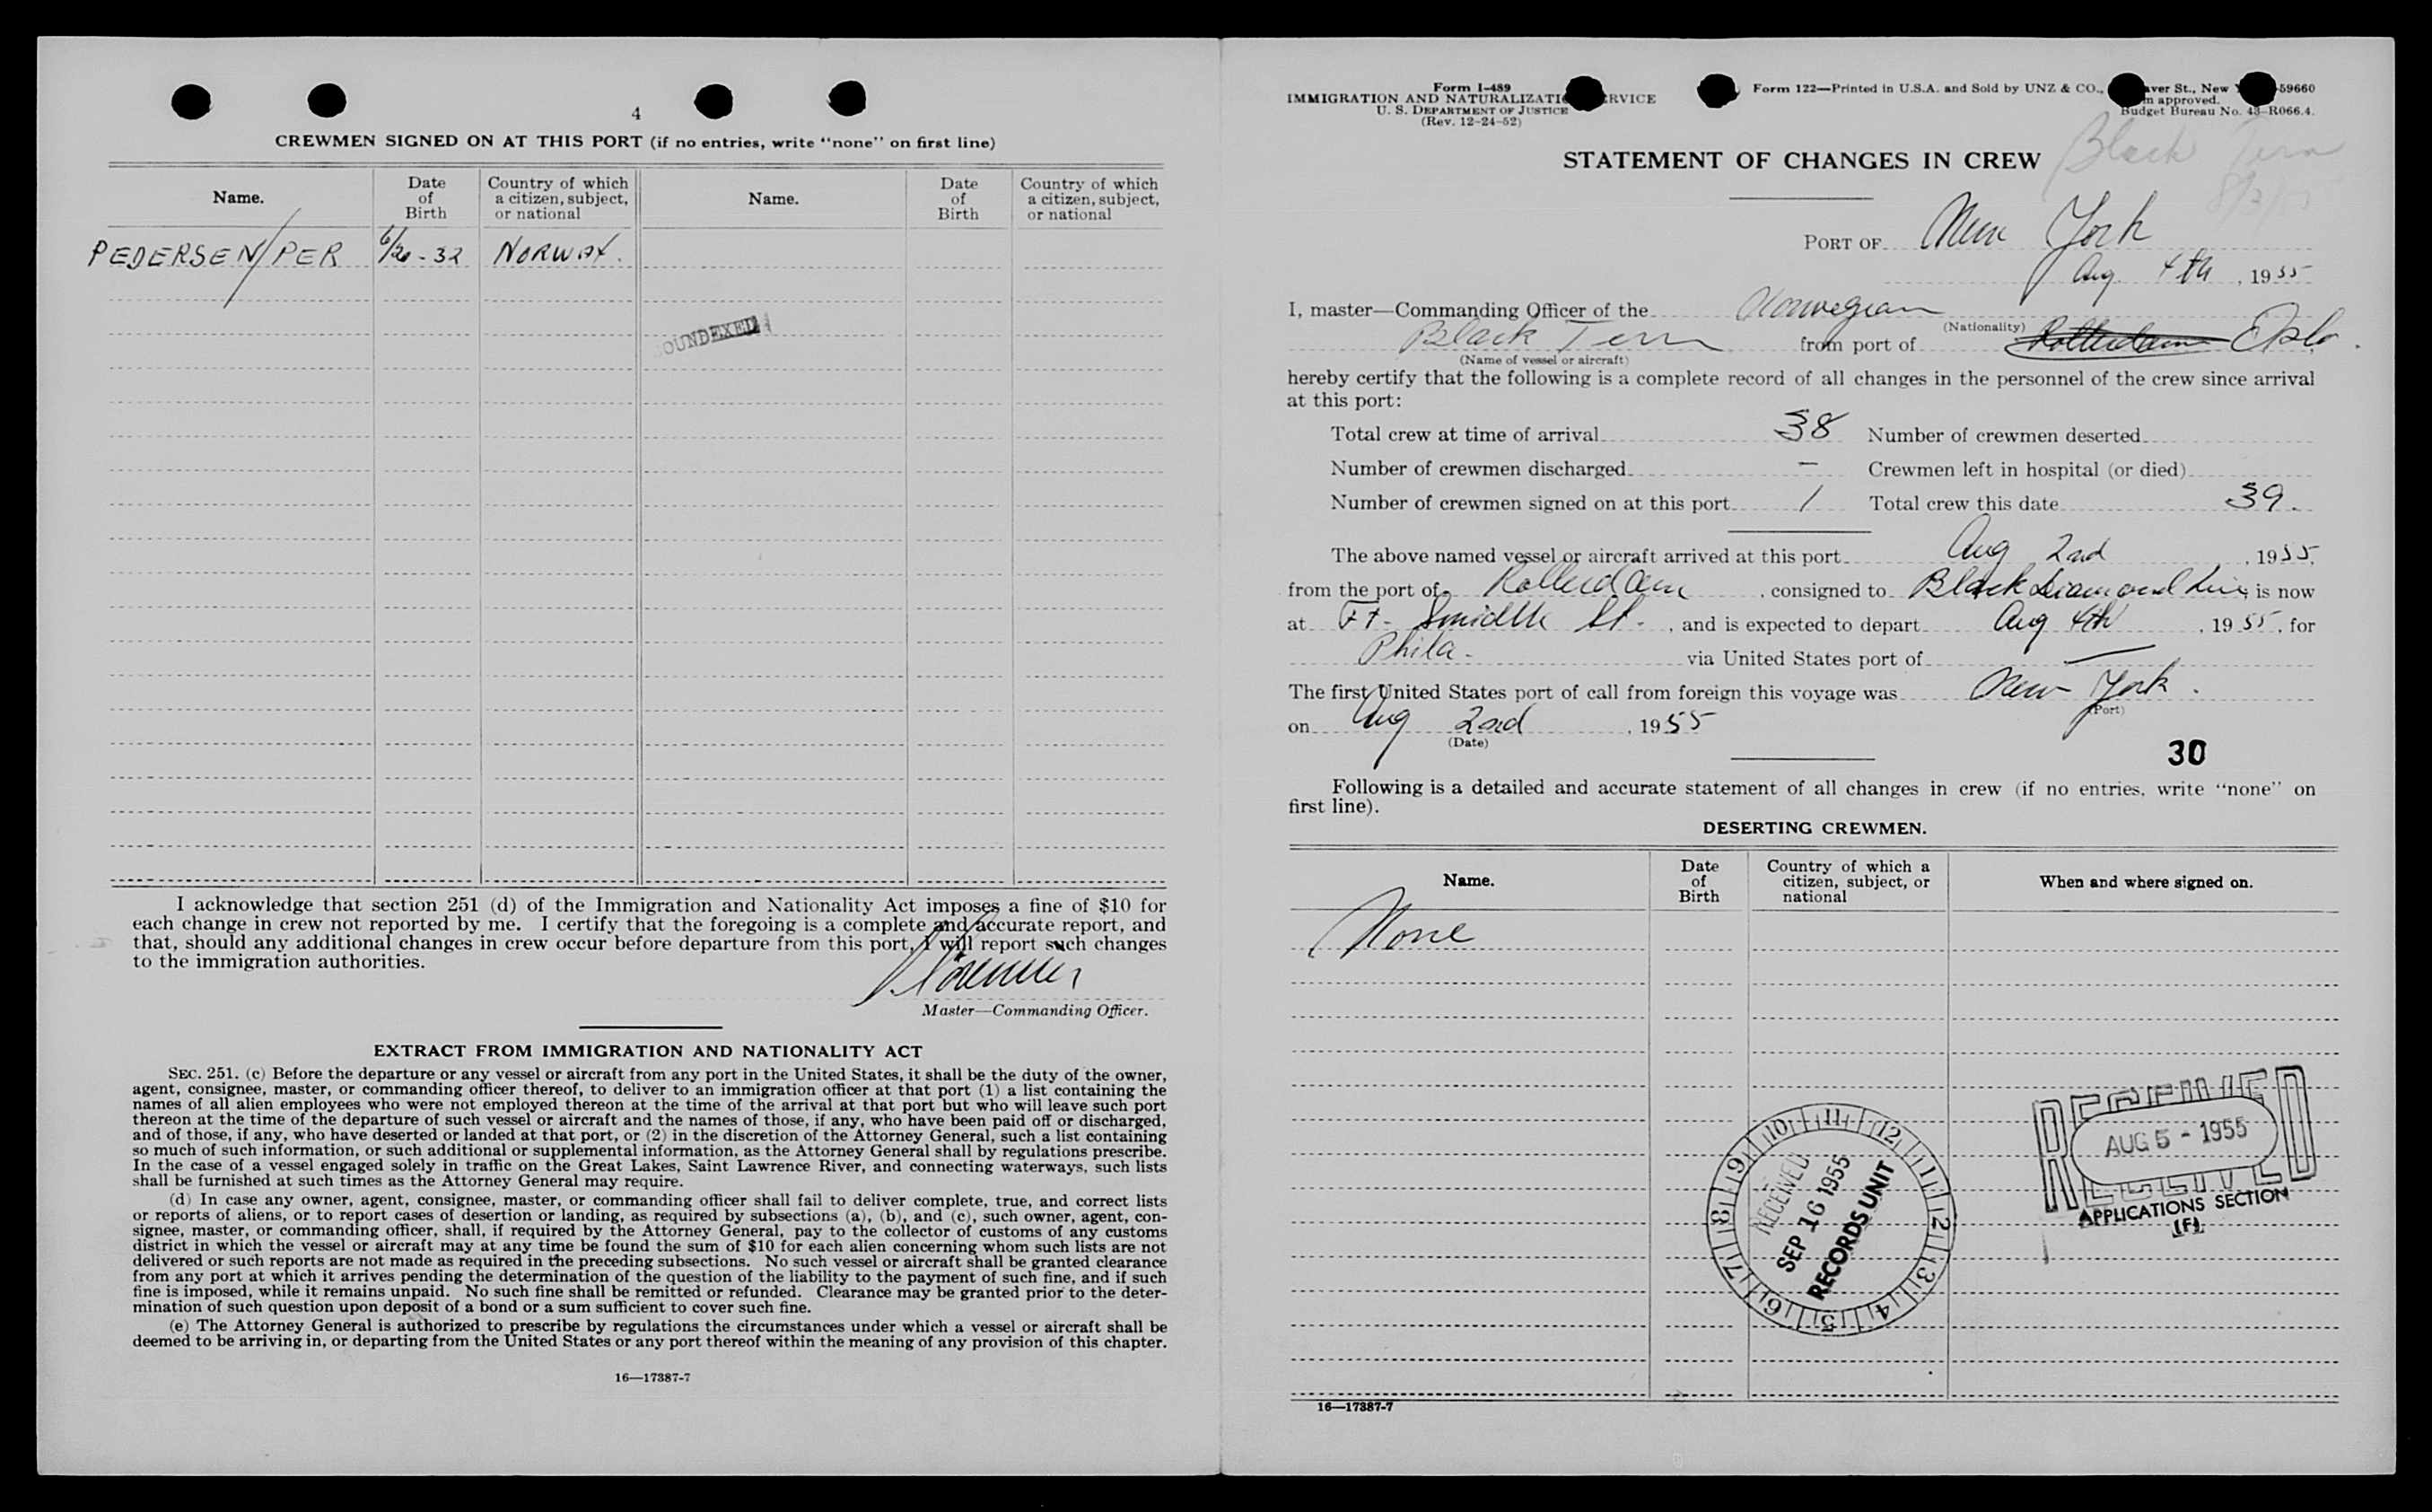 4
CREWMEN SIGNED ON AT THIS PORT (if no entries, write "none" on first line)
Name.
Date of Birth
Country of which a citizen, subject, or national
Name.
Date of Birth
Country of which a citizen, subject, or national
PEDERSEN/PER 6/20-32 NORWAY.
SOUNDEXED
I acknowledge that section 251 (d) of the Immigration and Nationality Act imposes a fine of $10 for
each change in crew not reported by me. I certify that the foregoing is a complete and accurate report, and
that, should any additional changes in crew occur before departure from this port, I will report such changes
to the immigration authorities.
Master—Commanding Officer.
EXTRACT FROM IMMIGRATION AND NATIONALITY ACT
SEC. 251. (c) Before the departure or any vessel or aircraft from any port in the United States, it shall be the duty of the owner,
agent, consignee, master, or commanding officer thereof, to deliver to an immigration officer at that port (1) a list containing the
names of all alien employees who were not employed thereon at the time of the arrival at that port but who will leave such port
thereon at the time of the departure of such vessel or aircraft and the names of those, if any, who have been paid off or discharged,
and of those, if any, who have deserted or landed at that port, or (2) in the discretion of the Attorney General, such a list containing
so much of such information, or such additional or supplemental information, as the Attorney General shall by regulations prescribe.
In the case of a vessel engaged solely in traffic on the Great Lakes, Saint Lawrence River, and connecting waterways, such lists
shall be furnished at such times as the Attorney General may require.
(d) In case any owner, agent, consignee, master, or commanding officer shall fail to deliver complete, true, and correct lists
or reports of aliens, or to report cases of desertion or landing, as required by subsections (a), (b), and (c), such owner, agent, con-
signee, master, or commanding officer, shall, if required by the Attorney General, pay to the collector of customs of any customs
district in which the vessel or aircraft may at any time be found the sum of $10 for each alien concerning whom such lists are not
delivered or such reports are not made as required in the preceding subsections. No such vessel or aircraft shall be granted clearance
from any port at which it arrives pending the determination of the question of the liability to the payment of such fine, and if such
fine is imposed, while it remains unpaid. No such fine shall be remitted or refunded. Clearance may be granted prior to the deter-
mination of such question upon deposit of a bond or a sum sufficient to cover such fine.
(e) The Attorney General is authorized to prescribe by regulations the circumstances under which a vessel or aircraft shall be
deemed to be arriving in, or departing from the United States or any port thereof within the meaning of any provision of this chapter.
16—17387-7
Form I-489
IMMIGRATION AND NATURALIZATI RVICE
U. S. DEPARTMENT OF JUSTICE
(Rev. 12-24-52)
Form 122—Printed in U.S.A. and Sold by UNZ & CO., aver St., New -59660
approved.
Budget Bureau No. 43-R066.4.
Black Tern
STATEMENT OF CHANGES IN CREW
PORT OF New York
Aug. 4th, 1955
I, master—Commanding Officer of the Norwegian
(Nationality)
Black Tern from port of Rotterdam Oslo.
(Name of vessel or aircraft)
hereby certify that the following is a complete record of all changes in the personnel of the crew since arrival
at this port:
Total crew at time of arrival 38 Number of crewmen deserted
Number of crewmen discharged — Crewmen left in hospital (or died)
Number of crewmen signed on at this port 1 Total crew this date 39.
The above named vessel or aircraft arrived at this port Aug 2nd, 1955,
from the port of Rotterdam, consigned to Black Diamond Line, is now
at Ft. St., and is expected to depart Aug 4th, 1955, for
Phila. via United States port of —
The first United States port of call from foreign this voyage was New York.
(Port)
on Aug 2nd, 1955
(Date)
30
Following is a detailed and accurate statement of all changes in crew (if no entries, write "none" on
first line).
DESERTING CREWMEN.
Name.
Date of Birth
Country of which a citizen, subject, or national
When and where signed on.
None
RECEIVED
AUG 5 - 1955
APPLICATIONS SECTION
(F)
10 11 12 1 2 3 4 5 6 7 8 9
RECEIVED
SEP 16 1955
RECORDS UNIT
16—17387-7